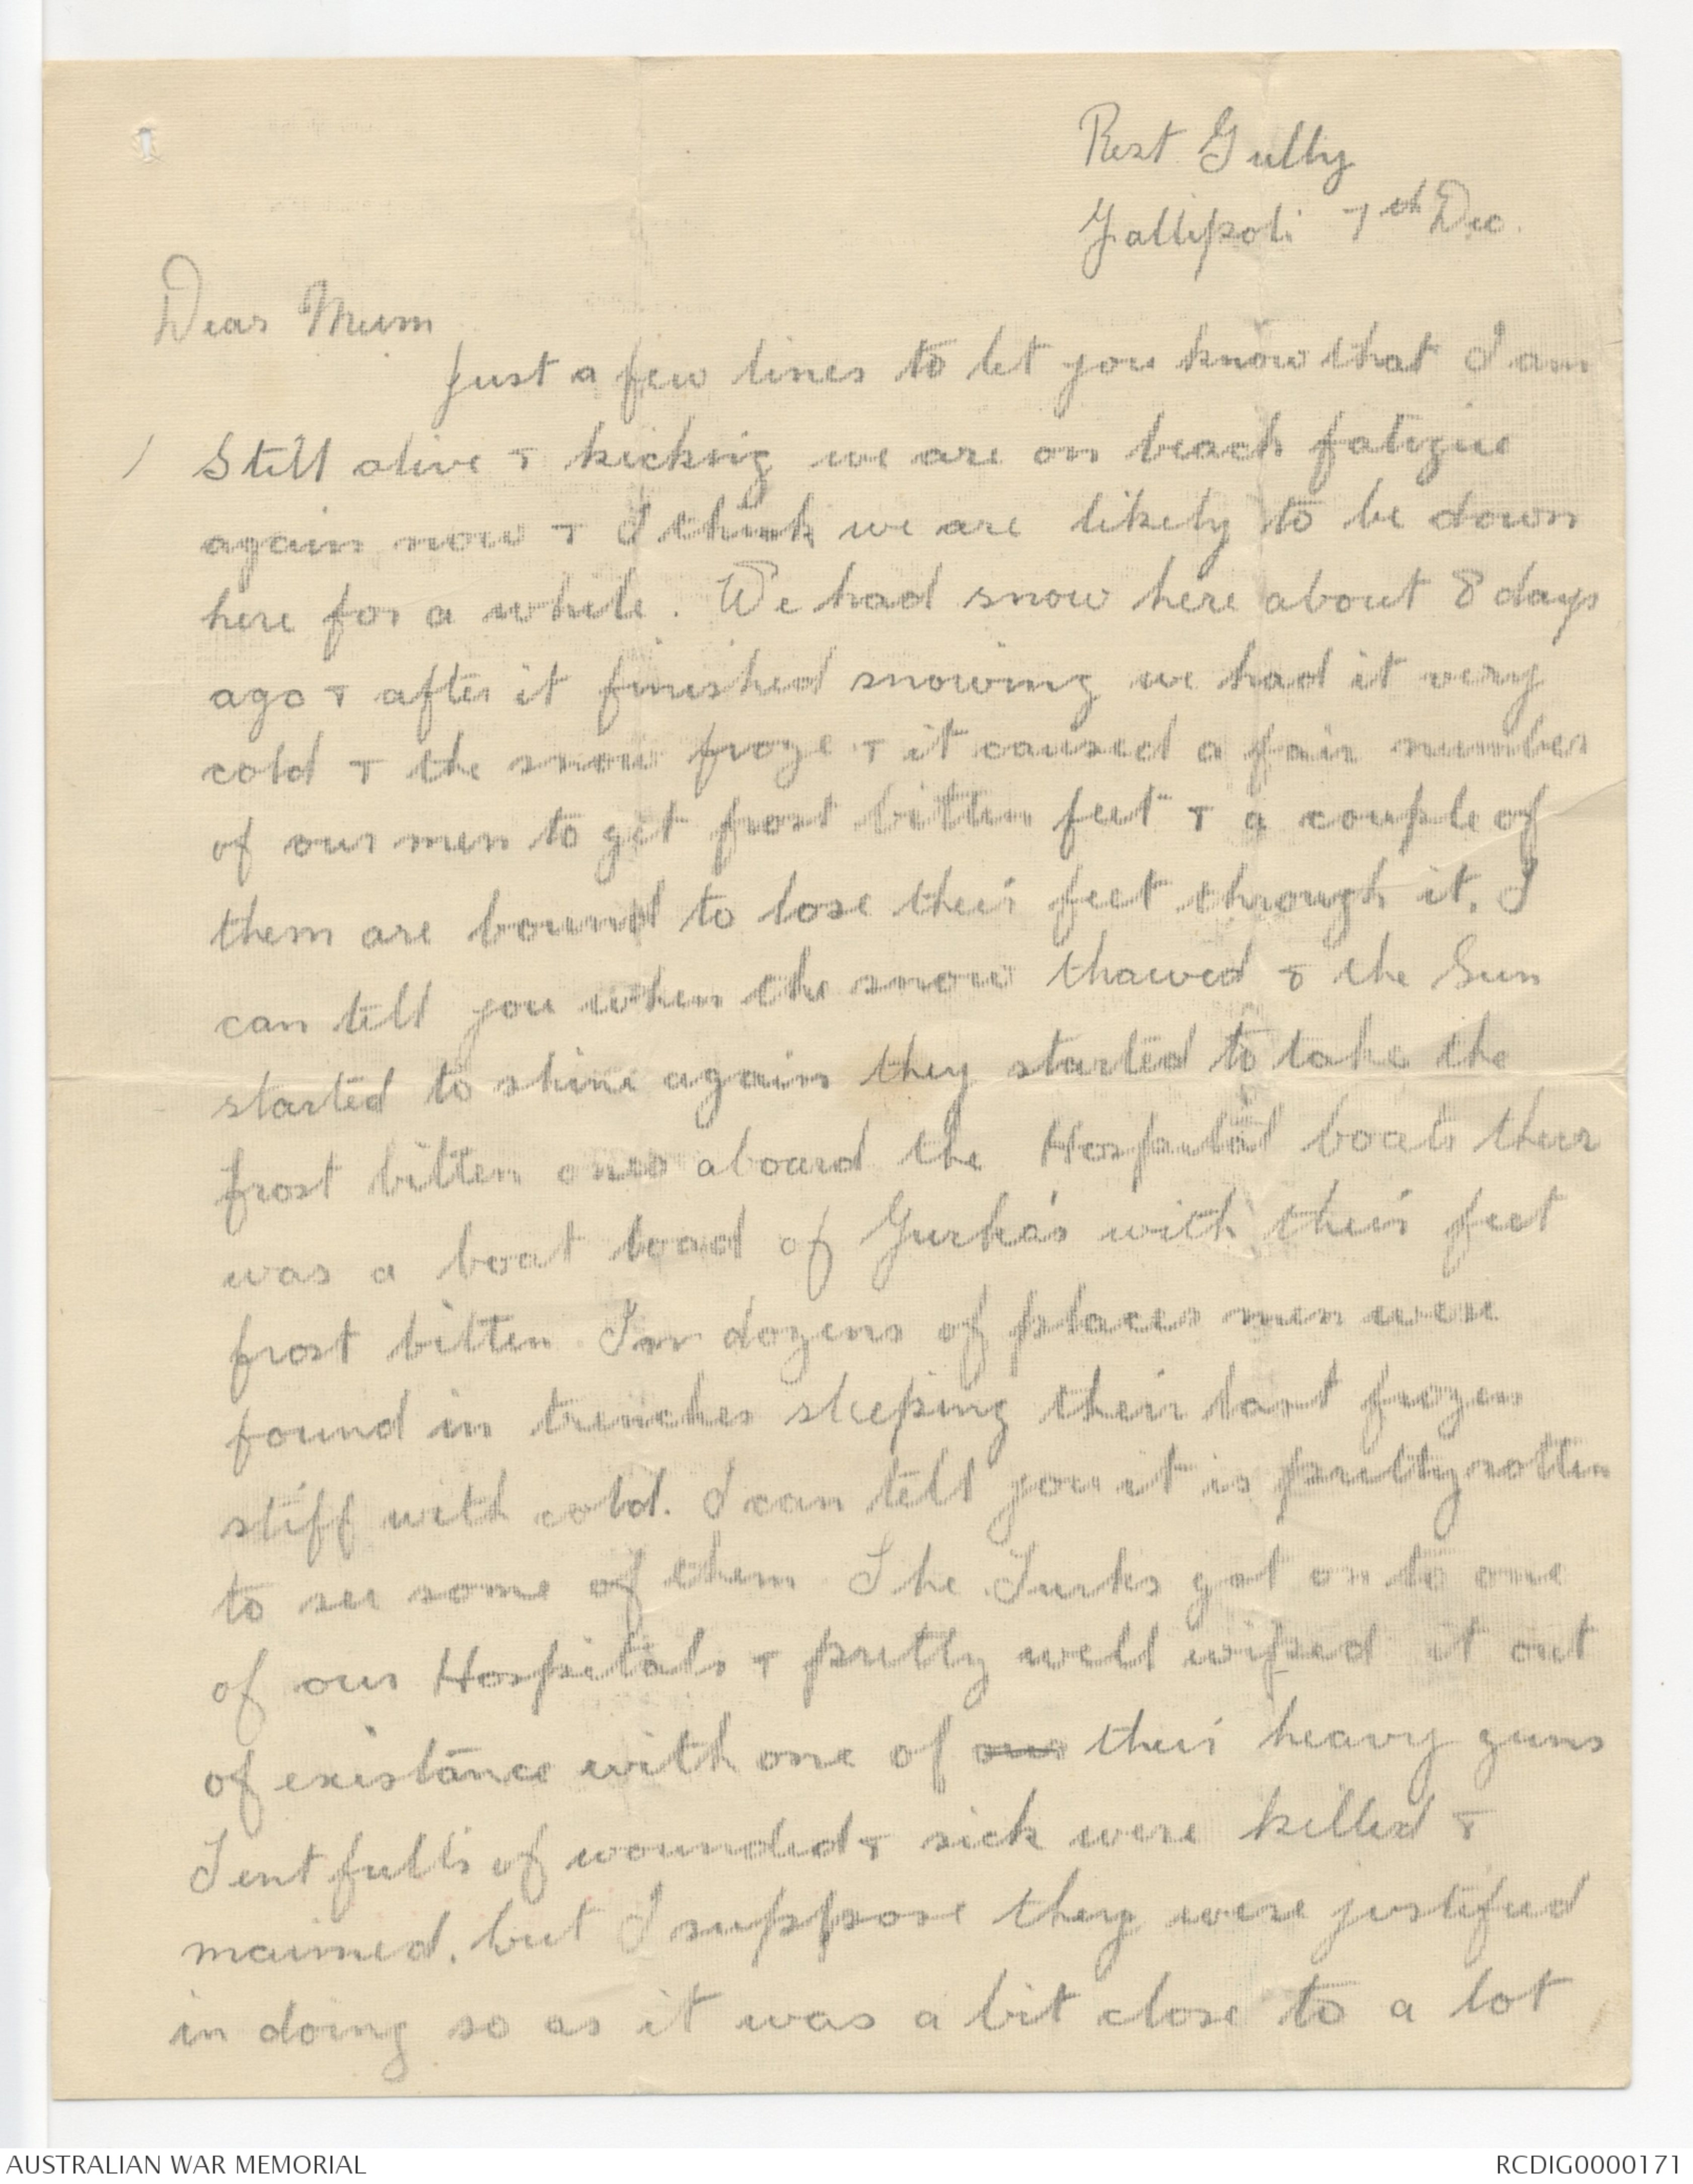 Rest Gully
Gallipoli 7th Dec.
Dear Mum
Just a few lines to let you know that I am
/ Still alive & kicking we are on beach fatigue
again now & I think we are likely to be down
here for a while. We had snow here about 8 days
ago & after it finished snowing we had it very
cold & the snow froze & it caused a fair number
of our men to get frost bitten feet & a couple of
them are bound to lose their feet through it. I
can tell you when the snow thawed & the Sun
started to shine again they started to take the
frost bitten ones aboard the Hospital boats their
was a boat load of Gurka's with their feet
frost bitten In dozens of places men were
found in trenches sleeping their last frozen
stiff with cold. I can tell you it is pretty rotten
to see some of them The Turks got on to one
of our Hospitals & pretty well wiped it out
of existance with one of our their heavy guns
Tent fulls of wounded & sick were killed &
maimed. but I suppose they were justified
in doing so as it was a bit close to a lot
AUSTRALIAN WAR MEMORIAL
RCDIG0000171